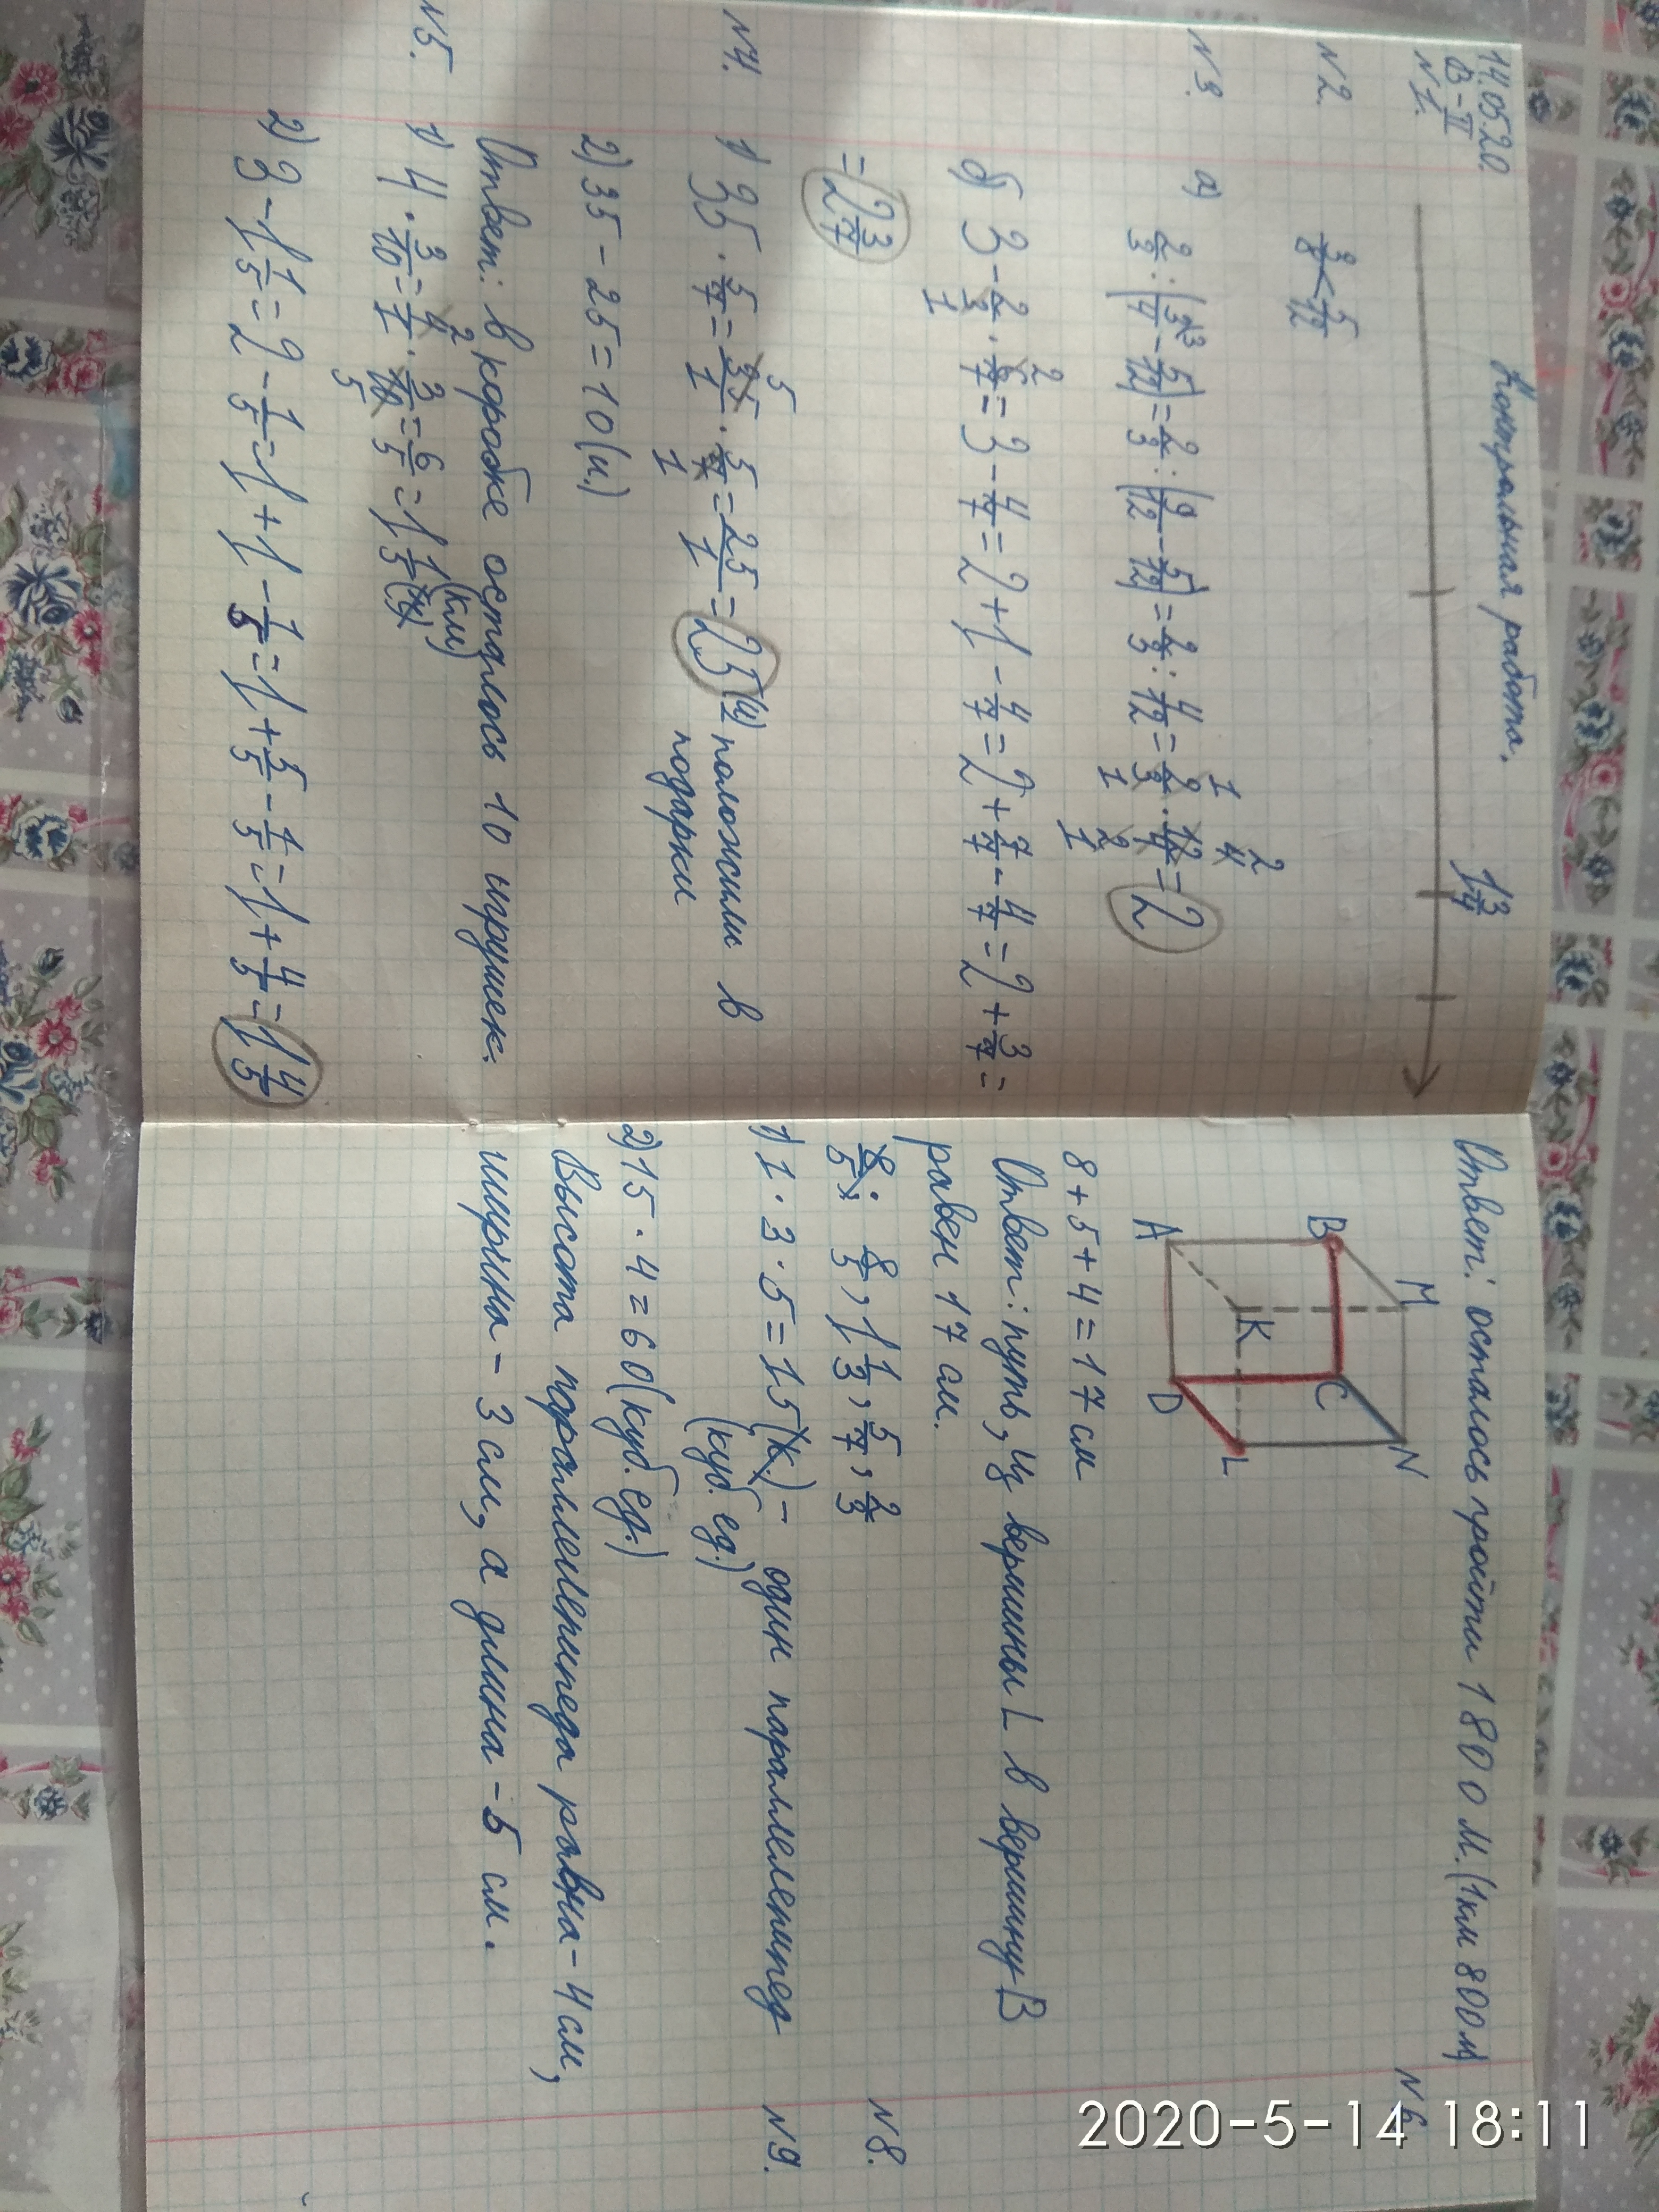 14.05.20.
Контрольная работа.
В-II
N1.
1 3/4
N2.
3/8 < 5/12
N3.
а) 2/3 : (3/4 - 5/12) = 2/3 : (9/12 - 5/12) = 2/3 : 4/12 = 2/3 · 12/4 = 2
б) 3 - 2/3 · 6/7 = 3 - 4/7 = 2 + 1 - 4/7 = 2 + 7/7 - 4/7 = 2 + 3/7 =
= 2 3/7
N4.
1) 35 · 5/7 = 35/1 · 5/7 = 25/1 = 25 (и) положили в
подарки
2) 35 - 25 = 10 (и.)
Ответ: в коробке осталось 10 игрушек.
N5.
1) 4 · 3/10 = 4/1 · 3/10 = 6/5 = 1 1/5 (км)
2) 3 - 1 1/5 = 2 - 1/5 = 1 + 1 - 1/5 = 1 + 5/5 - 1/5 = 1 + 4/5 = 1 4/5
Ответ: осталось пройти 1800 м. (1км 800м)
N6
B M
C N
A K
D L
8 + 5 + 4 = 17 см
Ответ: путь, из вершины L в вершину B
равен 17 см.
N8.
8/5, 1 1/3, 5/7, 2/3
N9.
1) 1 · 3 · 5 = 15 (к.) - один параллелепипед
(куб. ед.)
2) 15 · 4 = 60 (куб. ед.)
Высота параллелепипеда равна - 4 см,
ширина - 3 см, а длина - 5 см.
2020-5-14 18:11